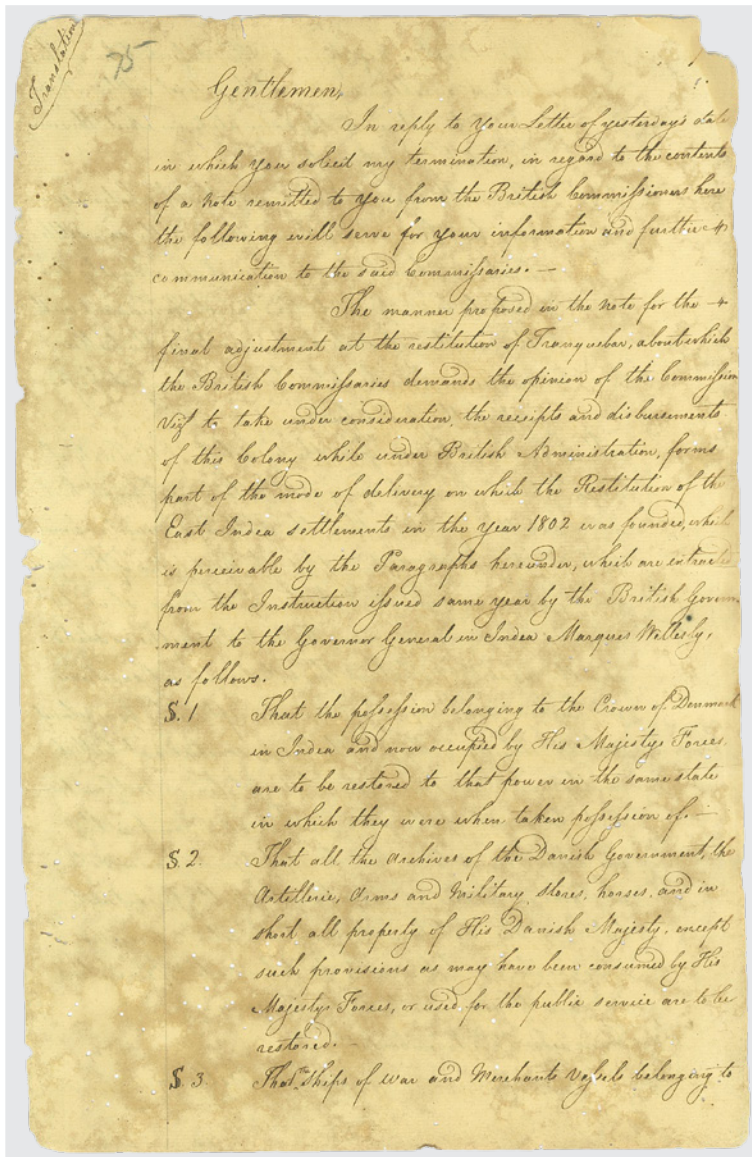 Translation
75
Gentlemen,
In reply to your Letter of yesterday's date
in which you solicit my termination, in regard to the contents
of a Note remitted to you from the British Commissioners here
the following will serve for your information and further
communication to the said Commissaries. —
The manner proposed in the Note for the
final adjustment at the restitution of Tranquebar, about which
the British Commissaries demands the opinion of the Commission
Vizt to take under consideration, the receipts and disbursements
of this Colony while under British Administration, forms
part of the mode of delivery on which the Restitution of the
East Indea settlements in the year 1802 was founded, which
is perceivable by the Paragraphs hereunder, which are extracted
from the Instruction issued same year by the British Govern-
ment to the Governor General in Indea Marques Wellesly,
as follows.
S. 1 That the possession belonging to the Crown of Denmark
in Indea and now occupied by His Majestys Forces
are to be restored to that power in the same state
in which they were when taken possession of. —
S. 2. That all the Archives of the Danish Government, the
Artillerie, Arms and Military stores, horses, and in
short all property of His Danish Majesty, except
such provisions as may have been consumed by His
Majestys Forces, or used for the public service are to be
restored. —
S. 3. That the Ships of War and Merchants Vessels belonging to